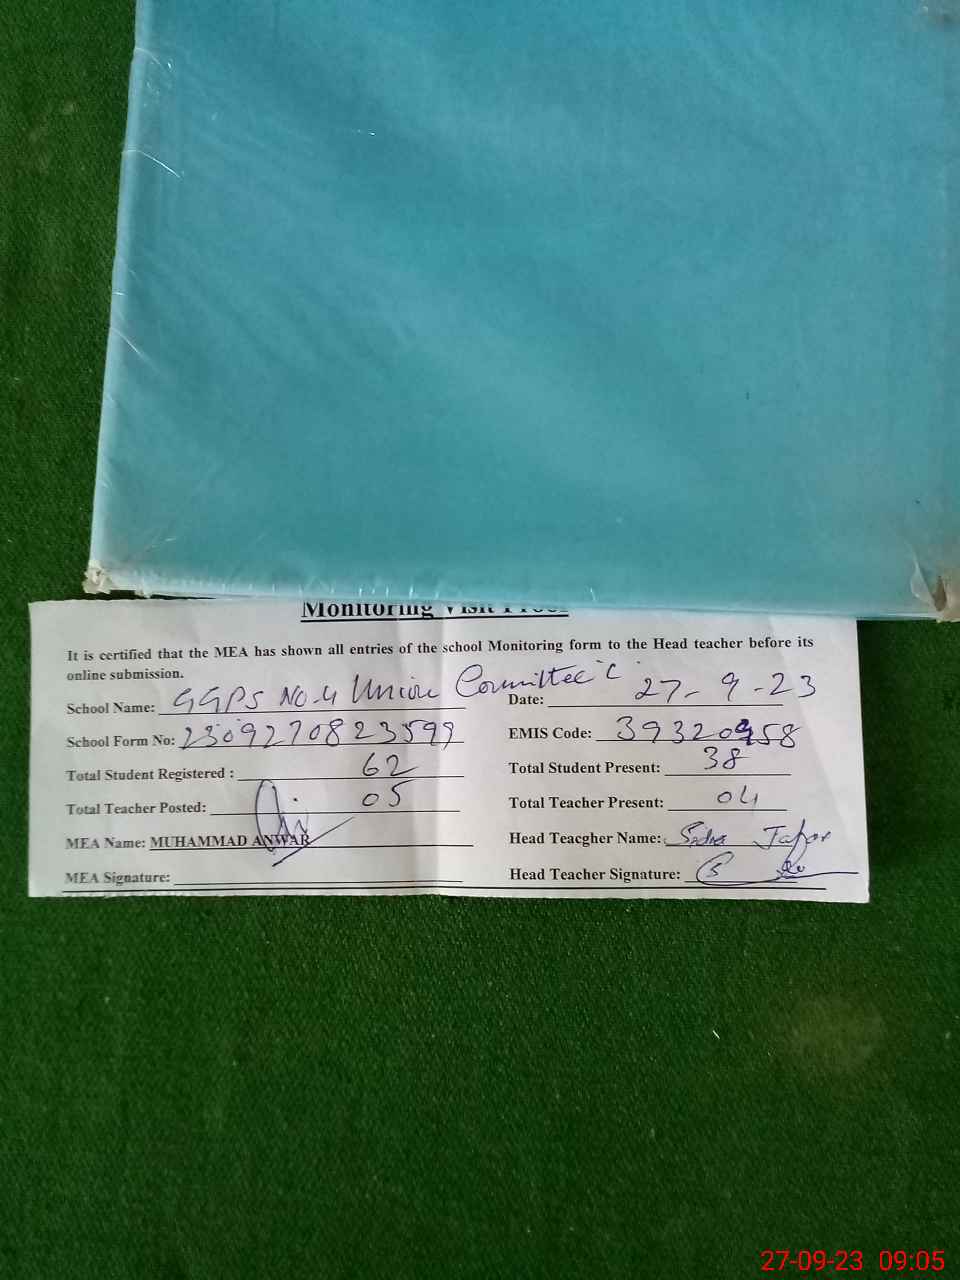 Monitoring Visit Proof
It is certified that the MEA has shown all entries of the school Monitoring form to the Head teacher before its
online submission.
School Name: GGPS No.4 Union Committee "C Date: 27-9-23
School Form No: 2309270823599 EMIS Code: 39320958
Total Student Registered : 62 Total Student Present: 38
Total Teacher Posted: 05 Total Teacher Present: 04
MEA Name: MUHAMMAD ANWAR Head Teacgher Name: Jafar
MEA Signature: Head Teacher Signature:
27-09-23 09:05